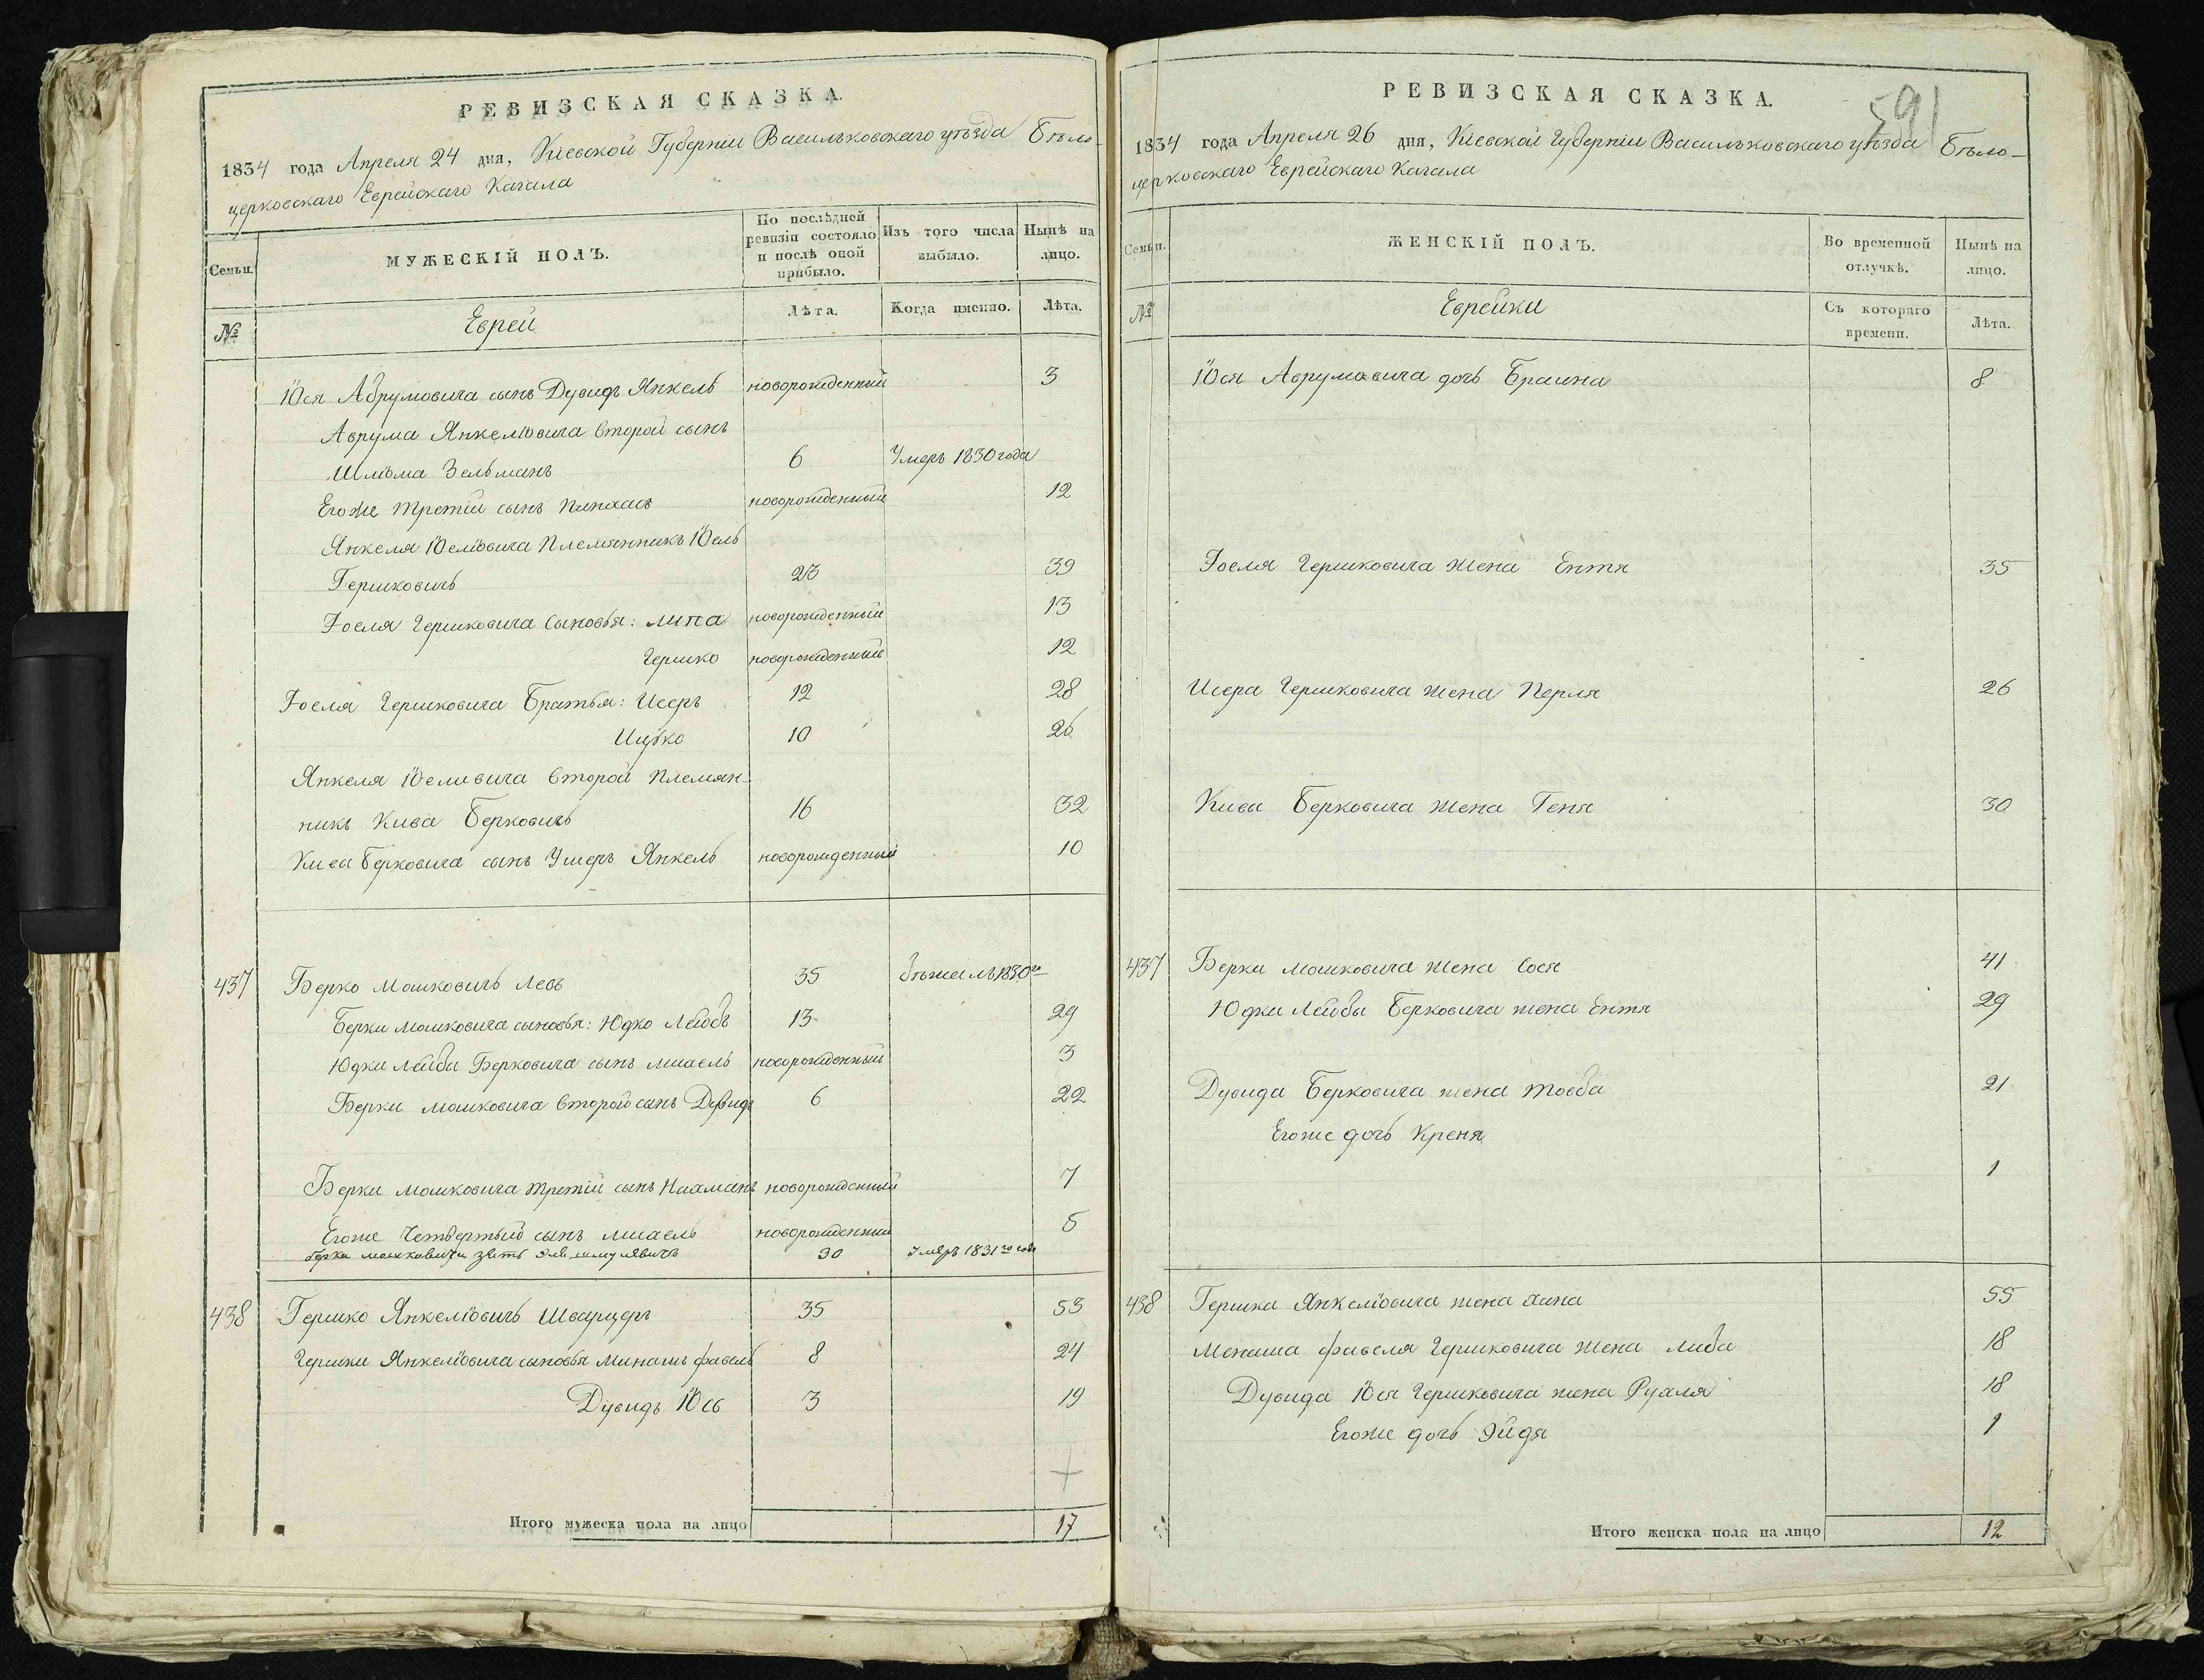 РЕВИЗСКАЯ СКАЗКА.
1834 года Апреля 24 дня, Кіевской Губерніи Васильковскаго уѣзда Бѣло-
церковскаго Еврейскаго Кагала
Семьи.
МУЖЕСКІЙ ПОЛЪ.
По послѣдней ревизіи состояло и послѣ оной прибыло.
Изъ того числа выбыло.
Нынѣ на лицо.
№
Еврей
Лѣта.
Когда именно.
Лѣта.
Іося Абрумовича сынъ Дувидъ Янкель новорожденный 3
Аврума Янкеліовича второй сынъ
Шліома Зельманъ 6 Умеръ 1830 года
Егоже третій сынъ Пинхасъ новорожденный 12
Янкеля Іоеліовича Племянникъ Іоель
Гершковичъ 23 39
Іоеля Гершковича сыновья: Липа новорожденный 13
Гершко новорожденный 12
Іоеля Гершковича Братья: Исеръ 12 28
Ицько 10 26
Янкеля Іоелиовича второй Племян-
никъ Кива Берковичъ 16 32
Кивы Берковича сынъ Умеръ Янкель новорожденный 10
437 Берко Мошковичъ Левъ 35 Бѣжалъ 1830го
Берки Мошковича сыновья: Юдко Лейбъ 13 29
Юдки Лейбы Берковича сынъ Мшаель новорожденный 3
Берки Мошковича второй сынъ Дувидъ 6 22
Берки Мошковича третій сынъ Нахманъ новорожденный 7
Егоже Четвертый сынъ Мшаель новорожденный 5
берки мошковича зять Эля шмулявичъ 30 Умеръ 1831го года
438 Гершко Янкеліовичъ Шварцеръ 35 53
Гершки Янкеліовича сыновья Минашъ Фавель 8 24
Дувидъ Іось 3 19
Итого мужеска пола на лицо 17
РЕВИЗСКАЯ СКАЗКА.
591
1834 года Апреля 26 дня, Кіевской Губерніи Васильковскаго уѣзда Бѣло-
церковскаго Еврейскаго Кагала
Семьи.
ЖЕНСКІЙ ПОЛЪ.
Во временной отлучкѣ.
Нынѣ на лицо.
№
Еврейки
Съ котораго времени.
Лѣта.
Іося Аврумовича дочь Браина 8
Іоеля Гершковича жена Ентя 35
Исера Гершковича жена Перля 26
Кивы Берковича жена Геня 30
437 Берки Мошковича жена Сося 41
Юдки Лейбы Берковича жена Ентя 29
Дувида Берковича жена Товба 21
Егоже дочь Креня
1
438 Гершка Янкеліовича жена Хана 55
Менаша Фавеля Гершковича жена Либа 18
Дувида Іося Гершковича жена Рухля 18
Егоже дочь Эйдя 1
Итого женска пола на лицо 12